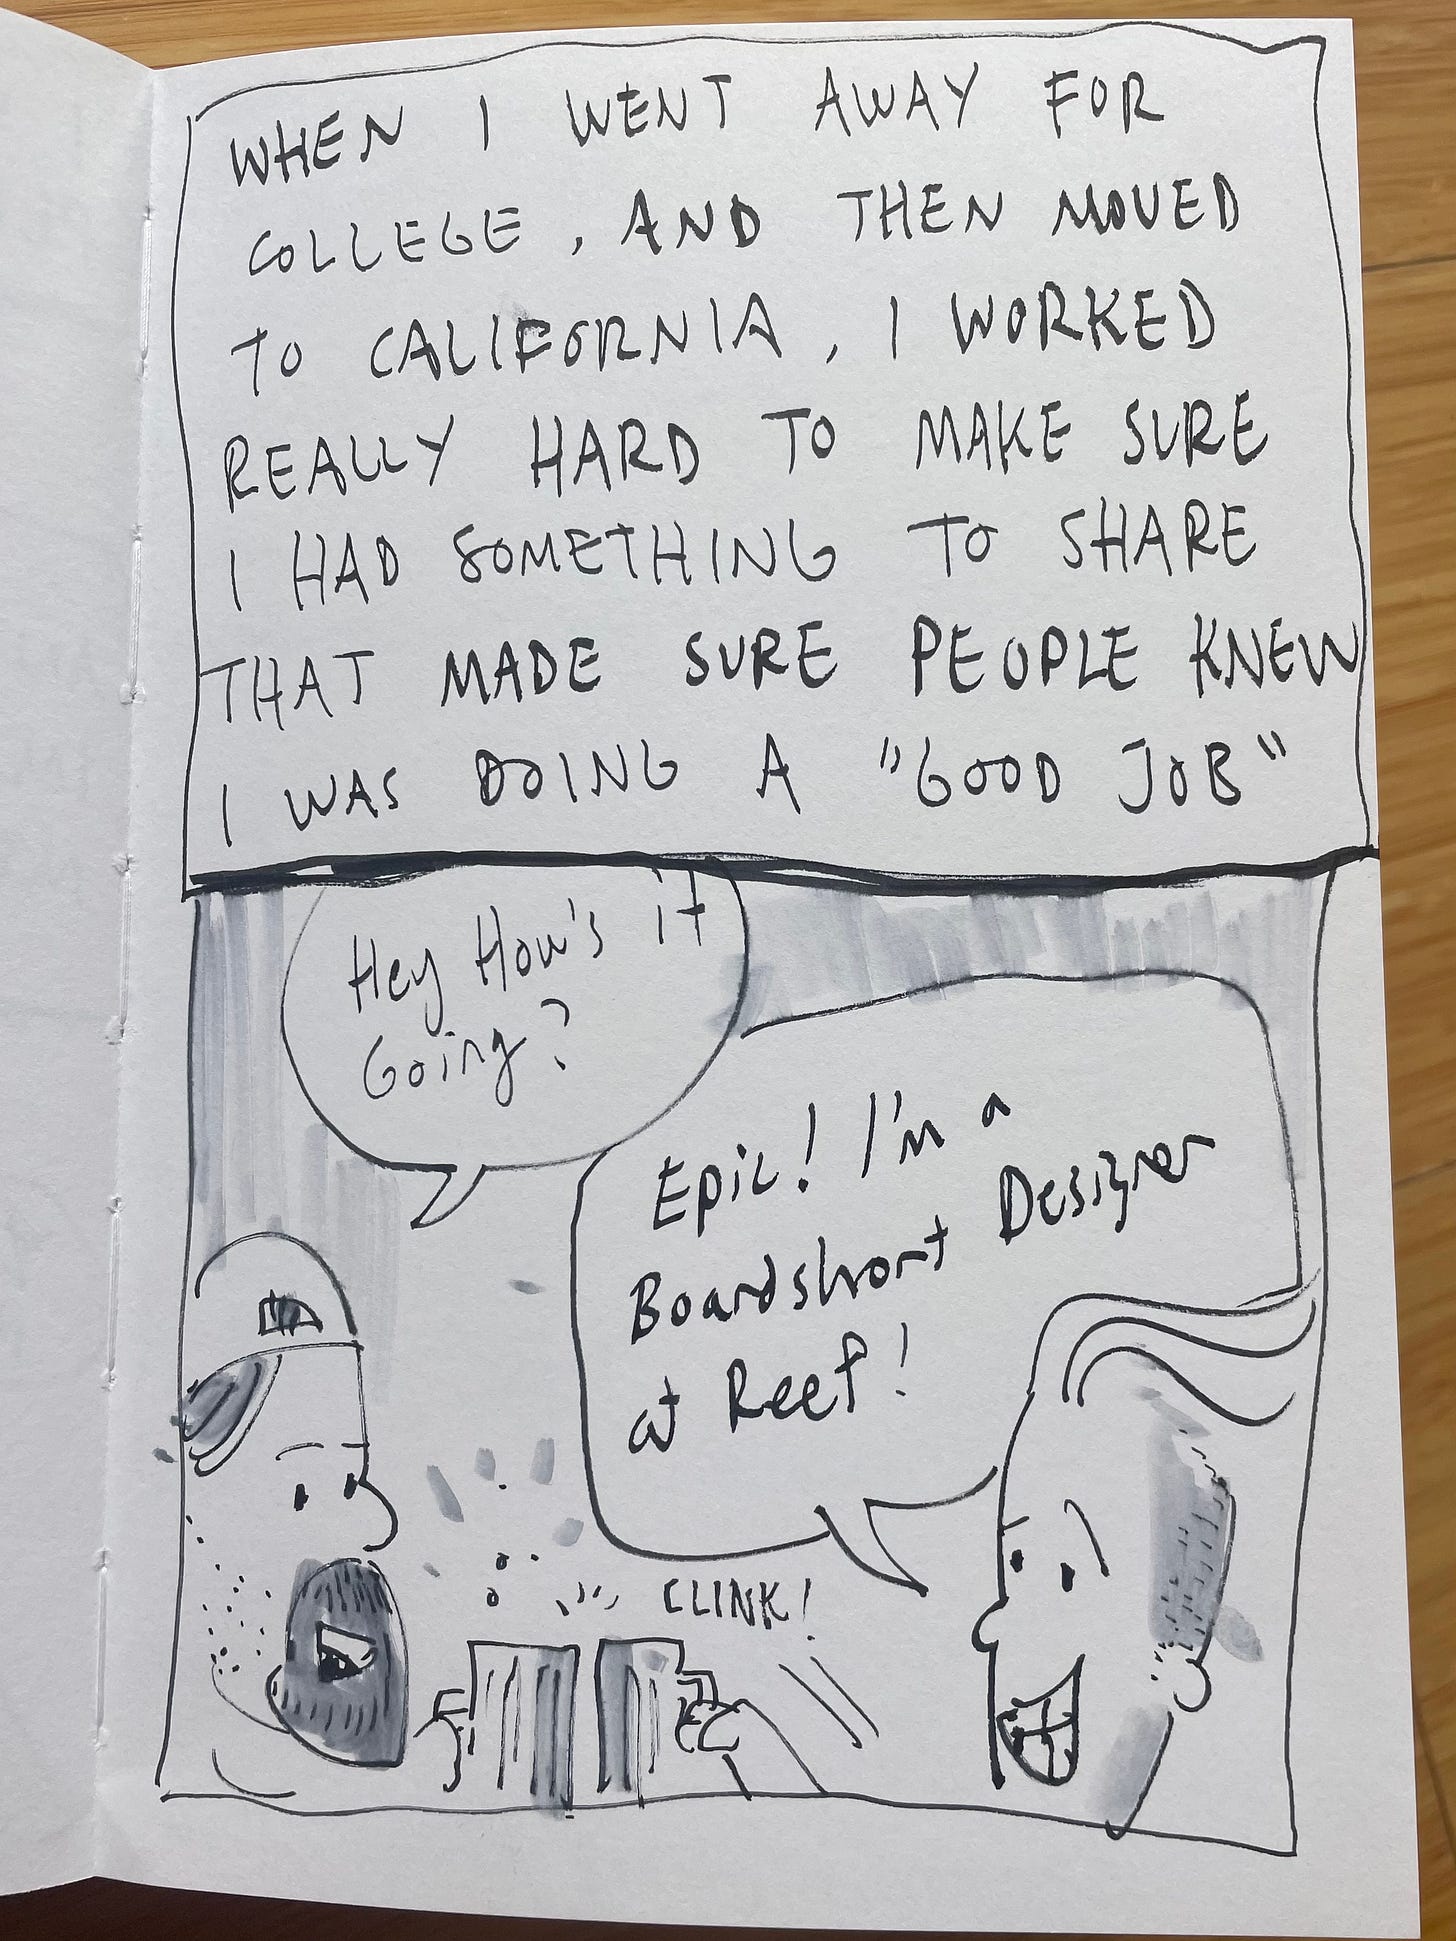 WHEN I WENT AWAY FOR
COLLEGE, AND THEN MOVED
TO CALIFORNIA, I WORKED
REALLY HARD TO MAKE SURE
I HAD SOMETHING TO SHARE
THAT MADE SURE PEOPLE KNEW
I WAS DOING A "GOOD JOB"
Hey How's it
Going?
Epic! I'm a
Boardshort Designer
at Reef!
CLINK!